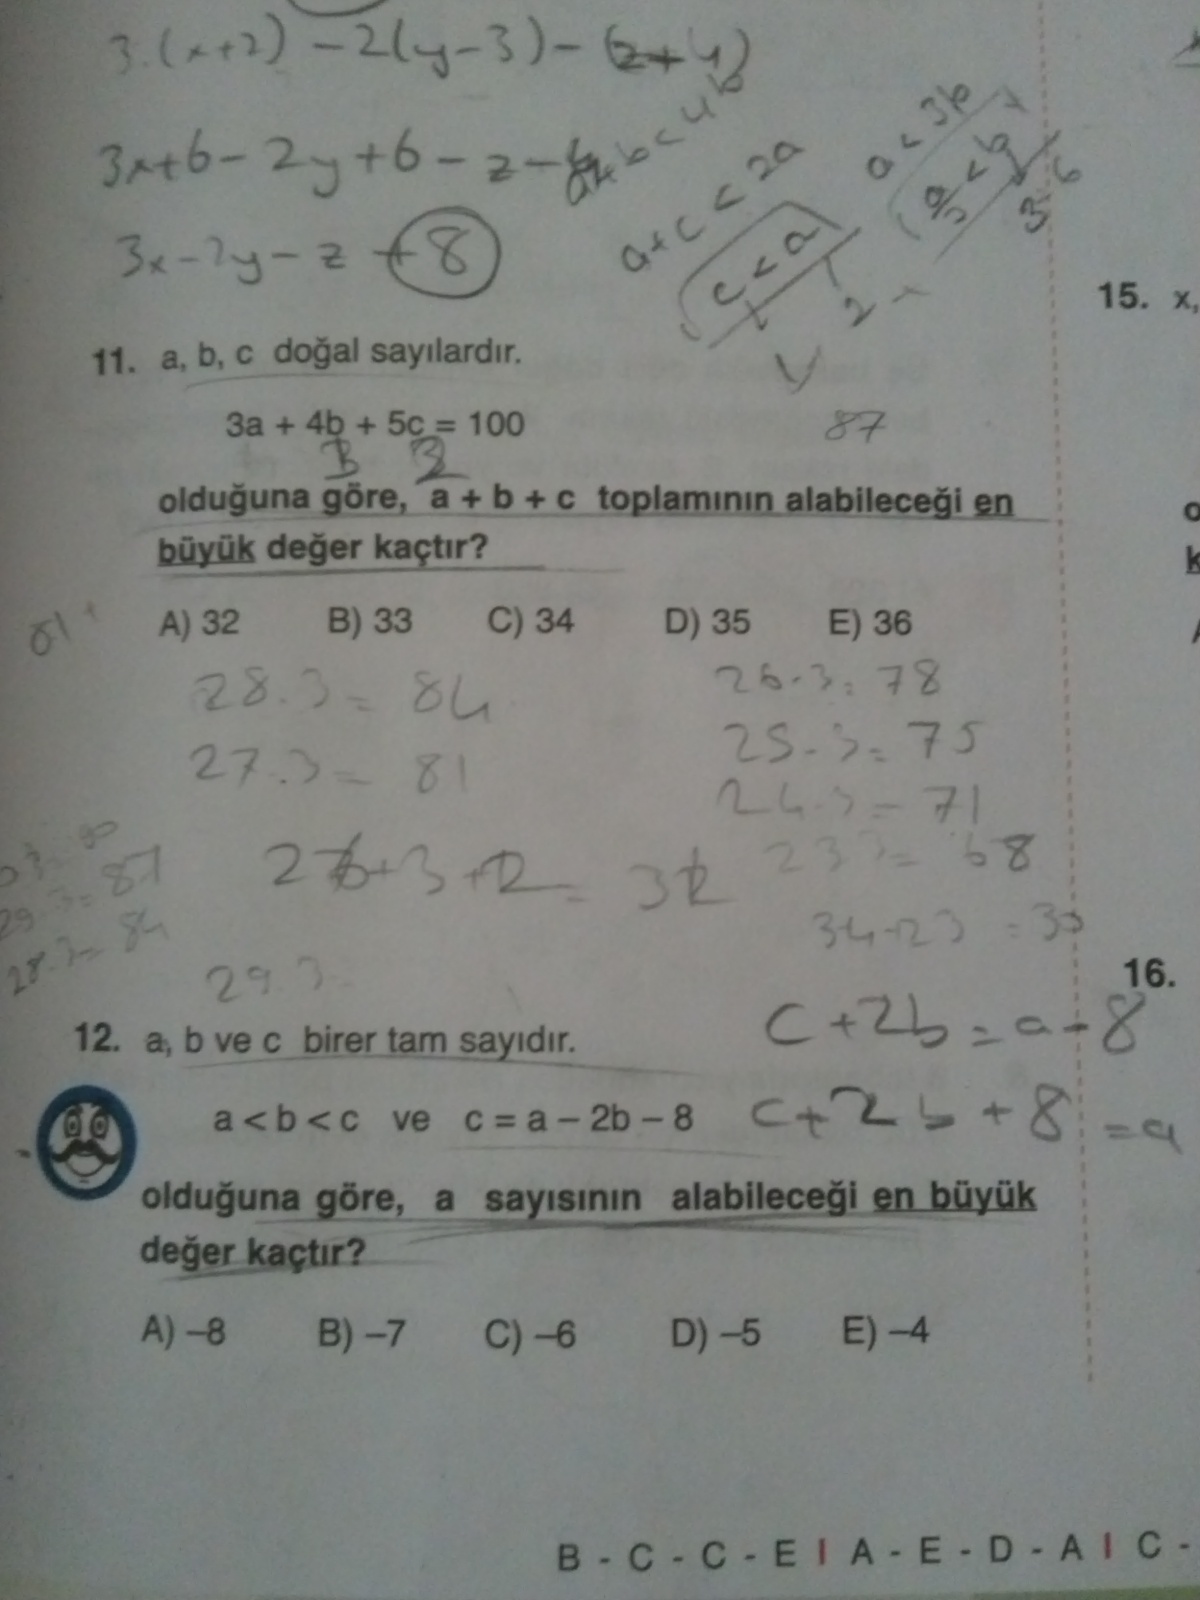 3.(x+2) - 2(y-3) - (z+4)
3x+6 - 2y+6 - z -
3x-2y- z +8
a+c < 2a
c < a
a < 3b
15. x,
11. a, b, c doğal sayılardır.
3a + 4b + 5c = 100
87
3 2
olduğuna göre, a + b + c toplamının alabileceği en
büyük değer kaçtır?
A) 32 B) 33 C) 34 D) 35 E) 36
28.3= 84
27.3= 81
26.3= 78
25.3= 75
24.3= 71
23 3= 68
29.3= 87
28.3= 84
29.3
16.
12. a, b ve c birer tam sayıdır.
c+2b = a-8
a < b < c ve c = a – 2b – 8
c+2b+8 = a
olduğuna göre, a sayısının alabileceği en büyük
değer kaçtır?
A) –8 B) –7 C) –6 D) –5 E) –4
B - C - C - E | A - E - D - A | C -